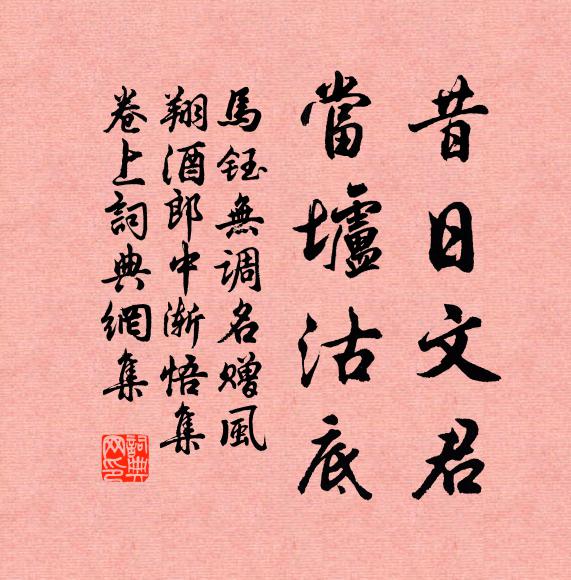 昔日文君
當壚沽底
馬鈺無調名赠風
翔酒郎中渐悟集
卷上詞典網集
詞典网印